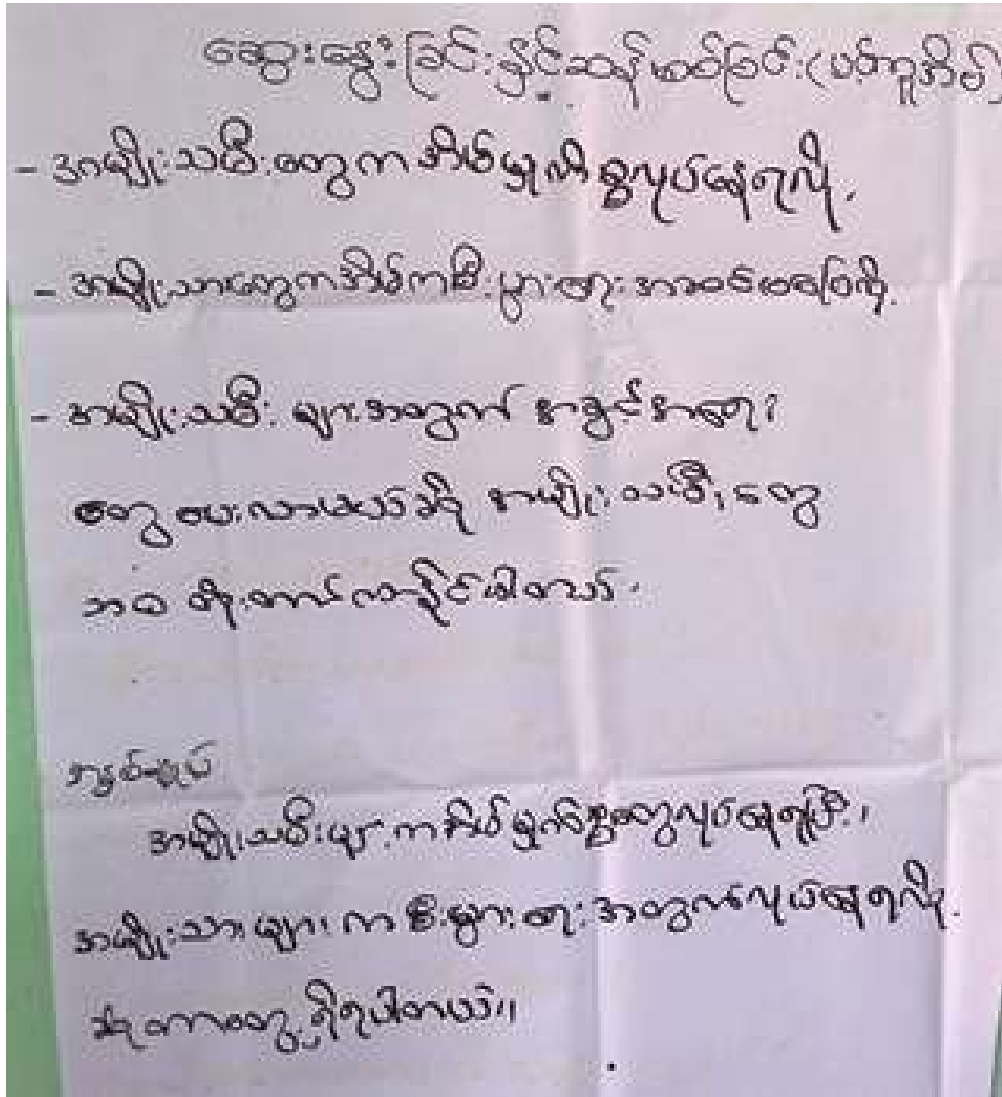 ဆွေးနွေးခြင်းနှင့်ဆန်းစစ်ခြင်း(
- အမျိုးသမီးတွေကအိမ်မှုကိစ္စလုပ်နေရလို့
- အမျိုးသားတွေကအိမ်ကစီးပွားရေးအဆင်မပြေလို့
- အမျိုးသမီး များအတွက် အခွင့်အရေး
တွေ ပေးလာမယ်ဆိုရင် အမျိုးသမီးတွေ
ဘဝ တိုးတက်လာနိုင်ပါတယ်။
အနှစ်ချုပ်
အမျိုးသမီးများကအိမ်မှုကိစ္စတွေလုပ်နေရပြီး၊
အမျိုးသားများက စီးပွားရေးအတွက်လုပ်နေရလို့
တွေ့ရှိရပါတယ်။